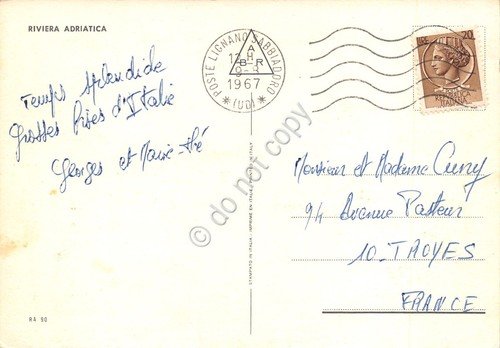 RIVIERA ADRIATICA
Temps splendide
Grosses Bises d'Italie
Georges et Marie-Thé
POSTE LIGNANO SABBIADORO
(UD)
A
B R
1967
20
Monsieur et Madame Cuny
94 Avenue Pasteur
10-TROYES
FRANCE
STAMPATO IN ITALIA - IMPRIMÉ EN ITALIE
RA 90
do not copy